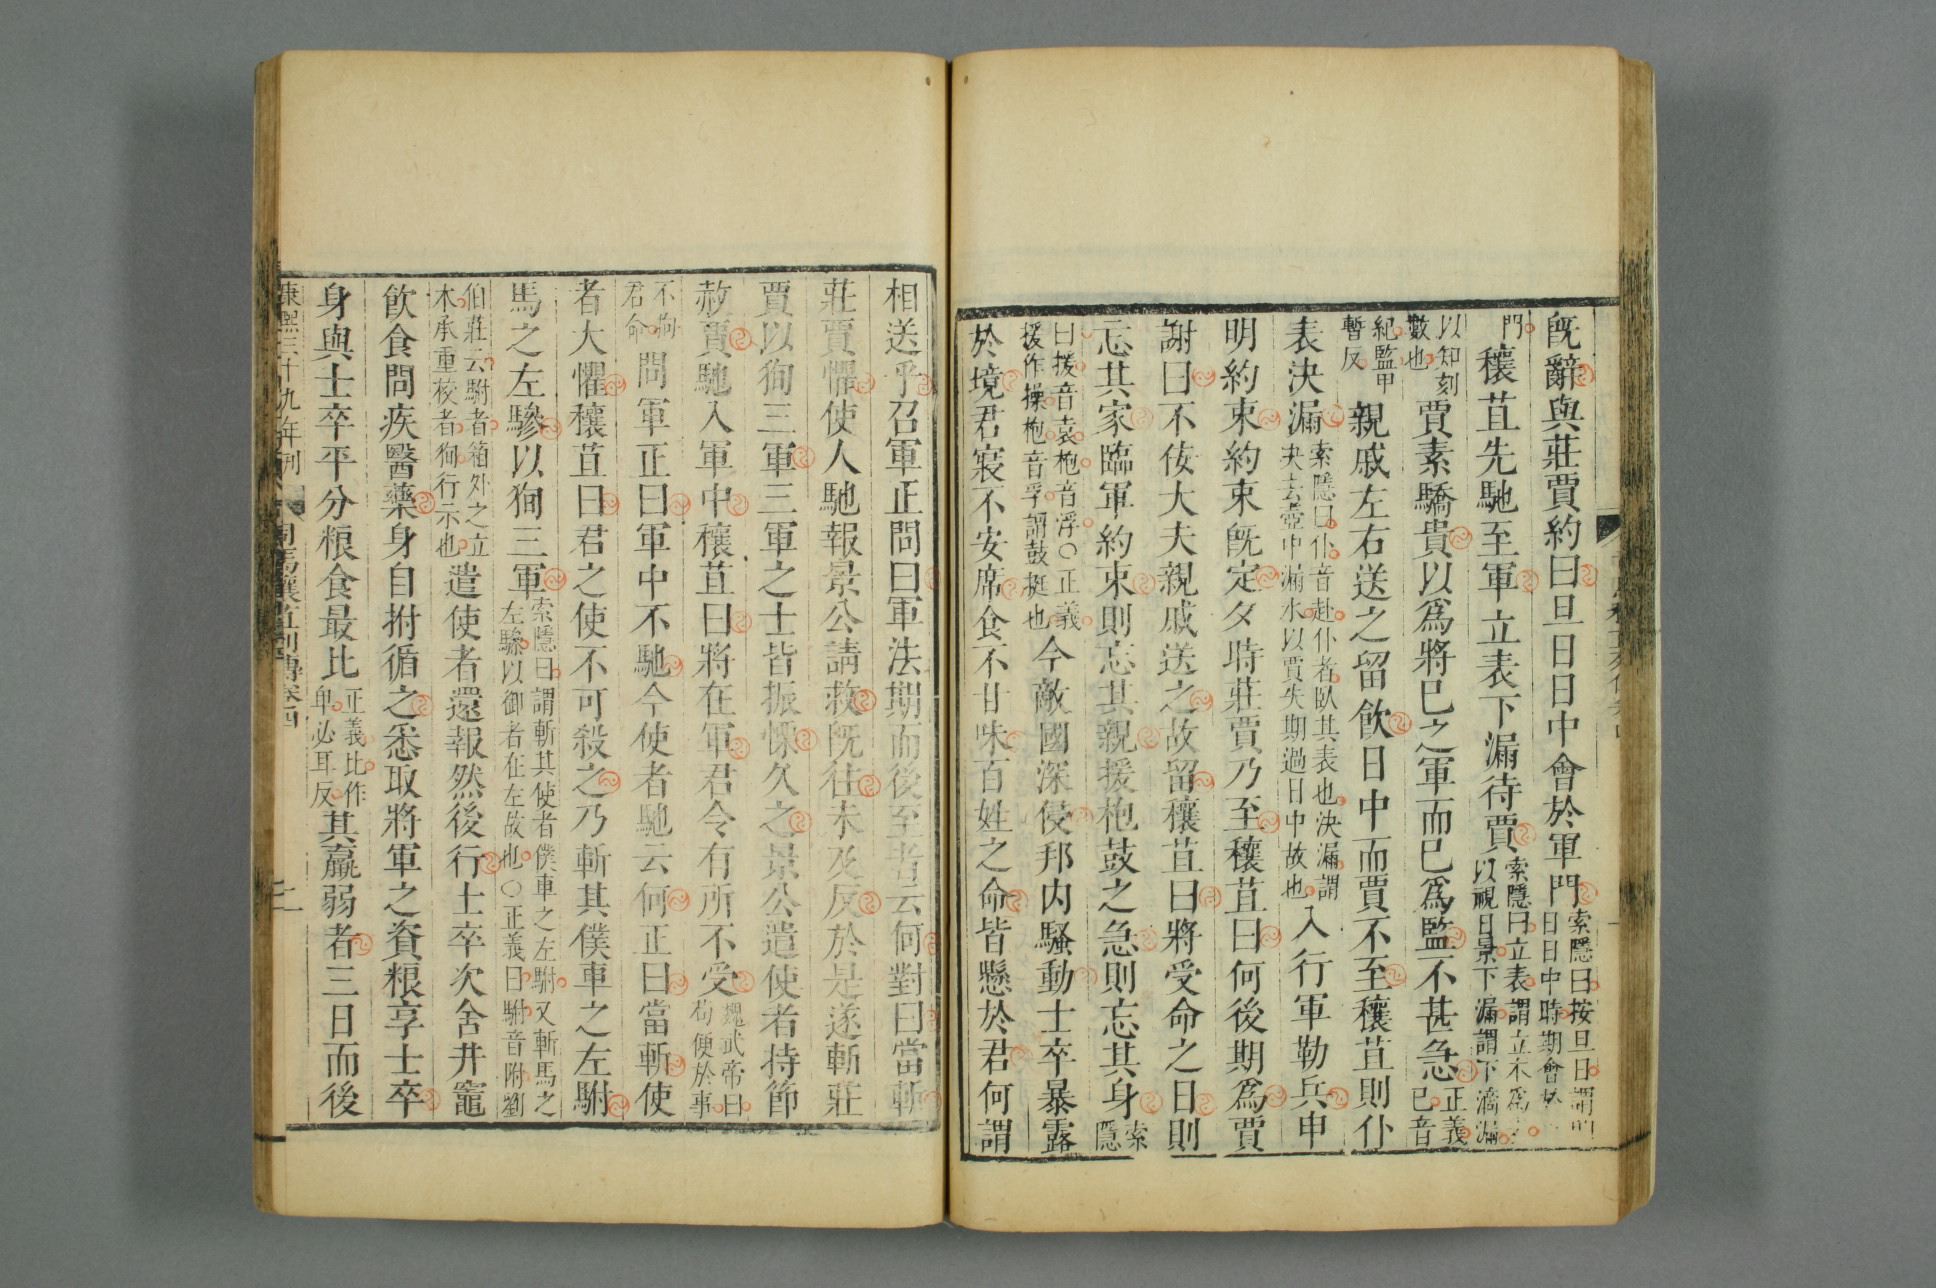 既辭與莊賈約曰旦日日中會於軍門索隱曰按旦日謂明日日中時期會於
門穰苴先馳至軍立表下漏待賈索隱曰立表謂立木為以視日景下漏謂下滴漏
以知刻數也賈素驕貴以爲將已之軍而已爲監不甚急正義已音
紀監甲暫反親戚左右送之留飲日中而賈不至穰苴則仆
表決漏索隱曰仆音赴仆者臥其表也決漏謂決去壺中漏水以賈失期過日中故也入行軍勒兵申
明約束約束既定夕時莊賈乃至穰苴曰何後期爲賈
謝曰不佞大夫親戚送之故留穰苴曰將受命之日則
忘其家臨軍約束則忘其親援枹鼓之急則忘其身索隱
曰援音袁枹音浮○正義援作操枹音孚謂鼓挺也今敵國深侵邦內騷動士卒暴露
於境君寢不安席食不甘味百姓之命皆懸於君何謂
相送乎召軍正問曰軍法期而後至者云何對曰當斬
莊賈懼使人馳報景公請救既往未及反於是遂斬莊
賈以徇三軍三軍之士皆振慄久之景公遣使者持節
赦賈馳入軍中穰苴曰將在軍君令有所不受魏武帝曰苟便於事
不拘君命問軍正曰軍中不馳今使者馳云何正曰當斬使
者大懼穰苴曰君之使不可殺之乃斬其僕車之左駙
馬之左驂以徇三軍索隱曰謂斬其使者僕車之左駙又斬馬之左驂以御者在左故也○正義曰駙音附劉
伯莊云駙者箱外之立木承重校者徇行示也遣使者還報然後行士卒次舍井竈
飲食問疾醫藥身自拊循之悉取將軍之資糧享士卒
身與士卒平分糧食最比正義比作卑必耳反其羸弱者三日而後
康熙三十九年刊 司馬穰苴列傳卷四 二